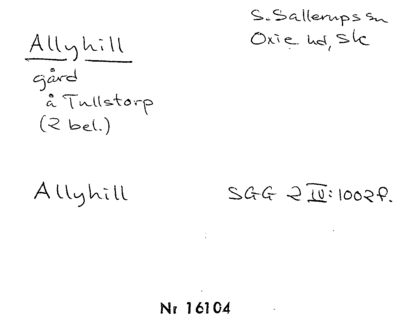 Allyhill
S. Sallerups sn
Oxie hd, Sk
gård
å Tullstorp
(2 bel.)
Allyhill
SGG 2 IV: 1002 f.
Nr 16104